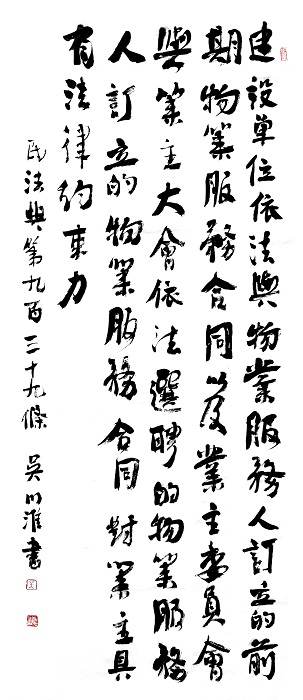 建設單位依法與物業服務人訂立的前
期物業服務合同以及業主委員會
與業主大會依法選聘的物業服務
人訂立的物業服務合同對業主具
有法律約束力
民法典第九百三十九條 吳川淮書